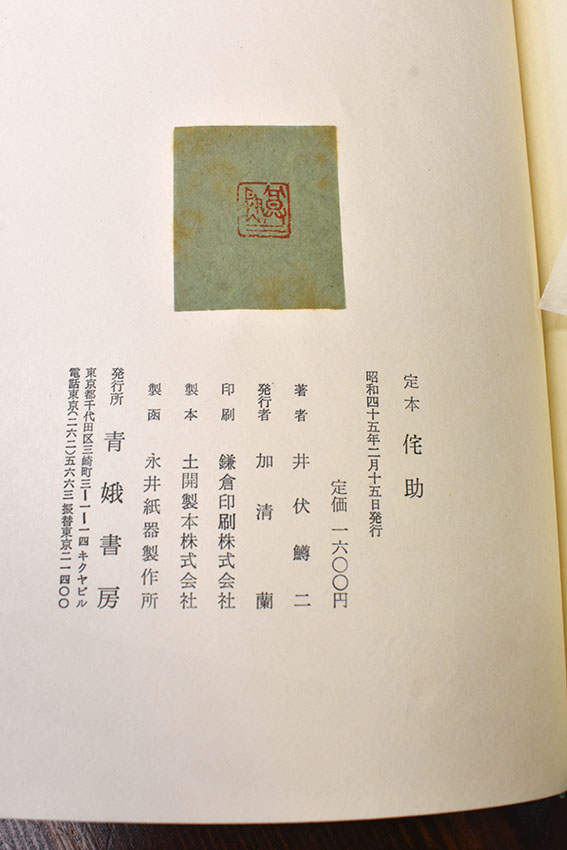 定本 侘助
昭和四十五年二月十五日発行
定価 一六〇〇円
著者 井伏鱒二
発行者 加清蘭
印刷 鎌倉印刷株式会社
製本 土開製本株式会社
製函 永井紙器製作所
発行所 青娥書房
東京都千代田区三崎町三ー一ー一四 キクヤビル
電話東京(二六二)五六六三 振替東京二一四〇〇